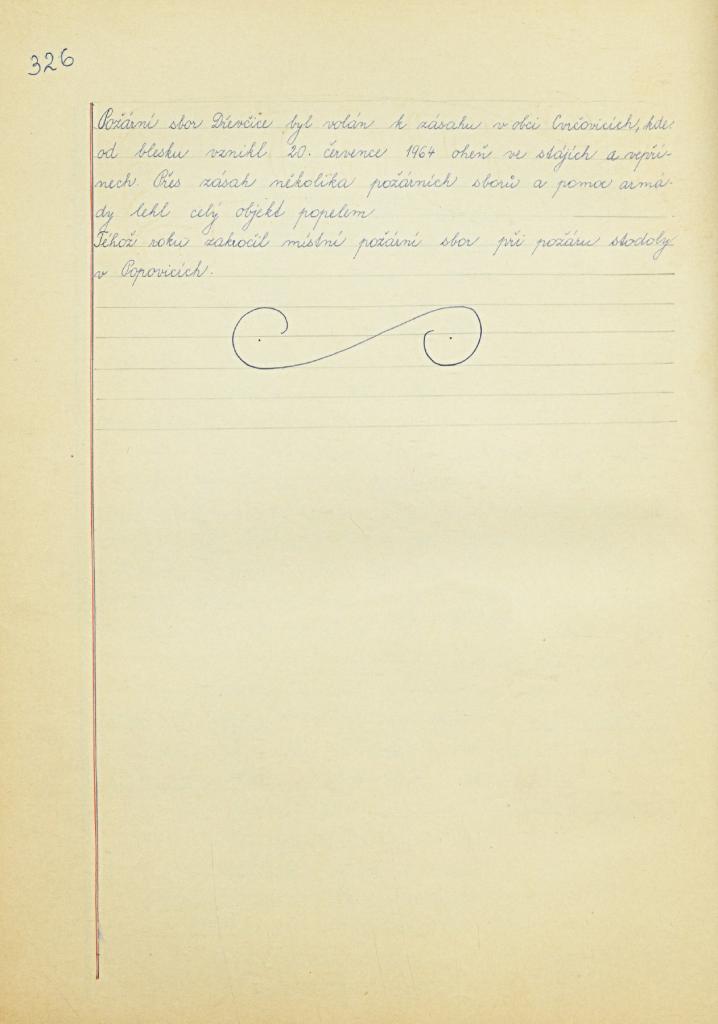 326
Požární sbor Dřevčice byl volán k zásahu v obci Cvrčovicích, kde
od blesku vznikl 20. července 1964 oheň ve stájích a vepří-
nech. Přes zásah několika požárních sborů a pomoc armá-
dy lehl celý objekt popelem
Téhož roku zakročil místní požární sbor při požáru stodoly
v Popovicích.